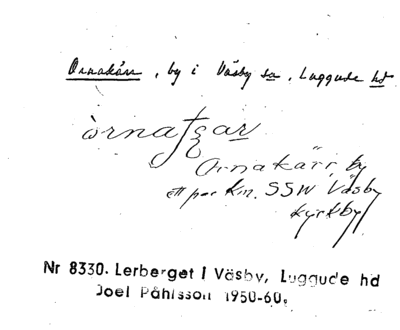 Ornakärr, by i Väsby sn, Luggude hd
Ornakärr by
ett par km. SSW Väsby
kyrkby
Nr 8330. Lerberget i Väsby, Luggude hd
Joel Påhlsson 1950-60.